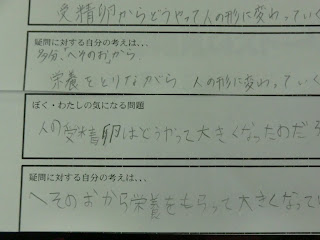 受精卵からどうやって人の形に変わっていく
疑問に対する自分の考えは、、、
多分、「へそのお」から
栄養をとりながら 人の形に変わっていく
ぼく・わたしの気になる問題
人の受精卵はどうやって大きくなったのだろ
疑問に対する自分の考えは、、、
へそのおから栄養をもらって大きくなってい